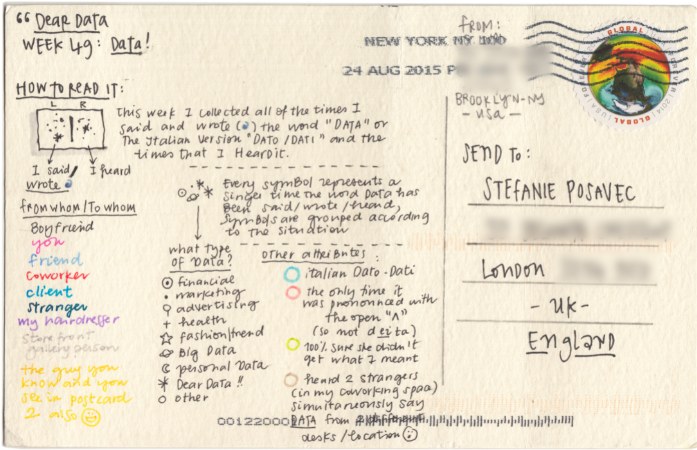 “ Dear Data
WEEK 49: Data!
HOW TO READ IT:
L R
I said/ wrote
I heard
This week I collected all of the times I
said and wrote ( ) the word "DATA" or
The Italian version "DATO/DATI" and the
times that I Heard it.
Every symbol represents a
single time the word data has
been said/wrote/heard,
symbols are grouped according
to the situation
from whom/To whom
Boyfriend
you
friend
coworker
client
stranger
my hairdresser
store front
gallery person
the guy you
know and you
see in postcard
2 also
what type
of Data?
financial
marketing
advertising
health
fashion/trend
Big Data
personal Data
Dear Data !!
other
other attributes:
italian Dato-Dati
the only time it
was pronounced with
the open "Λ"
(so not deita)
100% sure she didn't
get what I meant
heard 2 strangers
(in my coworking spaa)
simultaneously say
DATA from
desks/location
NEW YORK NY 100
24 AUG 2015 P
FROM:
BROOKLYN-NY
- USA -
GLOBAL
SEND TO:
STEFANIE POSAVEC
LONDON
- UK -
ENGLAND
001220001